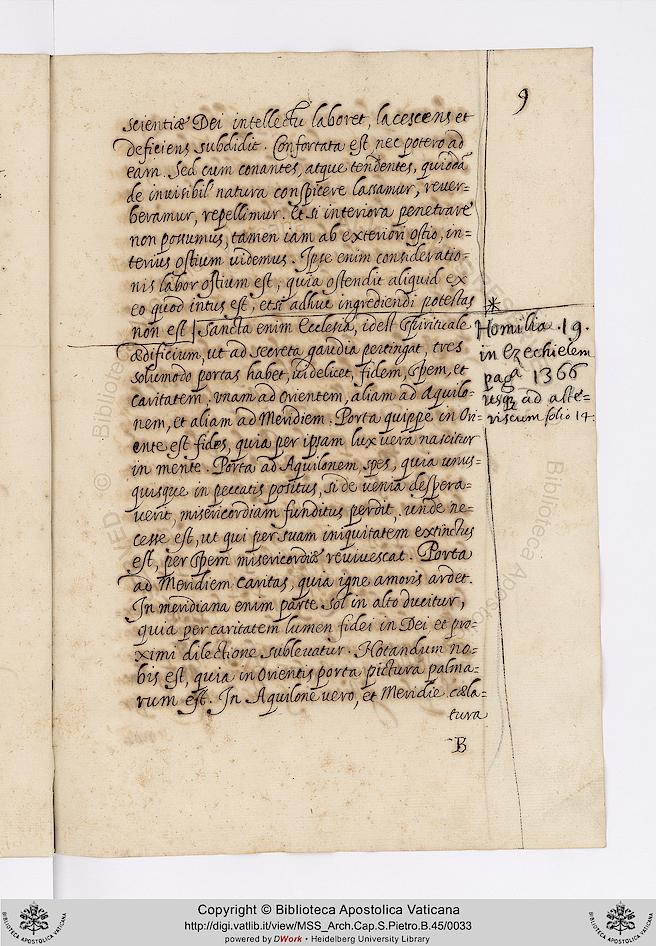 9
scientiæ Dei intellectu laboret, lacescens et
deficiens subdidit. Confortata est nec potero ad
eam. Sed cum conantes, atque tendentes, quiddā
de invisibili natura conspicere lassamur, rever=
beramur, repellimur. Et si interiora penetrare
non possumus, tamen iam ab exteriori ostio, in=
terius ostium videmus. Ipse enim consideratio=
nis labor ostium est, quia ostendit aliquid ex
eo quod intus est, etsi adhuc ingrediendi potestas
non est | Sancta enim Ecclesia, idest spirituale
ædificium, ut ad secreta gaudia pertingat, tres
solumodo portas habet, videlicet, fidem, spem, et
caritatem, unam ad Orientem, aliam ad Aquilo=
nem, et aliam ad Meridiem. Porta quippe in Ori=
ente est fides, quia per ipsam lux vera nascitur
in mente. Porta ad Aquilonem, spes, quia unus=
quisque in peccatis positus, si de venia despera=
verit, misericordiam funditus perdit, unde ne=
cesse est, ut qui per suam iniquitatem extinctus
est, per spem misericordiæ revivescat. Porta
ad Meridiem caritas, quia igne amoris ardet.
In meridiana enim parte sol in alto ducitur,
quia per caritatem lumen fidei in Dei et pro=
ximi dilectione sublevatur. Notandum no=
bis est, quia in Orientis porta pictura palma=
rum est. In Aquilone vero, et Meridie cæla=
tura
B
*
Homilia .19.
in Ezechielem
paga 1366
usq; ad aste=
riscum folio 14.
Copyright © Biblioteca Apostolica Vaticana
http://digi.vatlib.it/view/MSS_Arch.Cap.S.Pietro.B.45/0033
powered by DWork • Heidelberg University Library